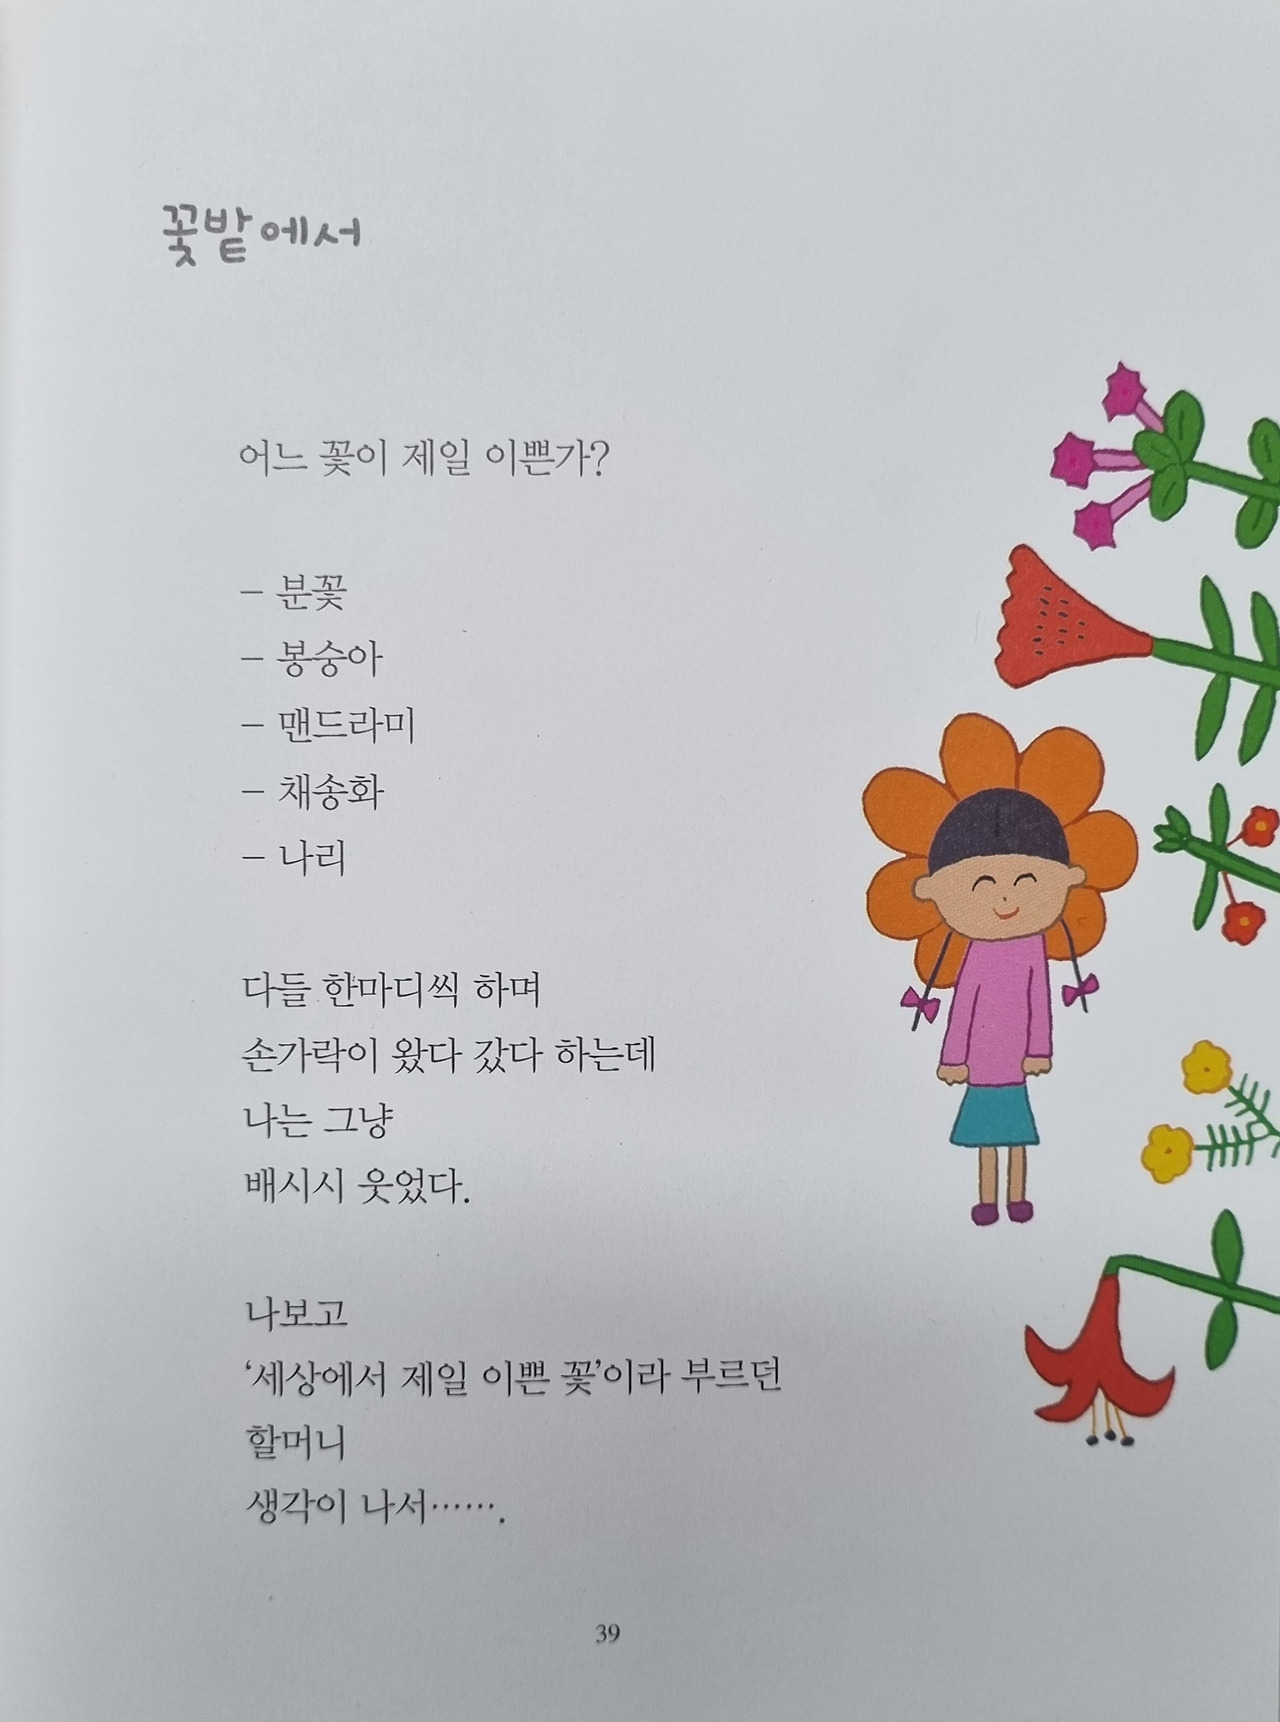 꽃밭에서
어느 꽃이 제일 이쁜가?
– 분꽃
– 봉숭아
– 맨드라미
– 채송화
– 나리
다들 한마디씩 하며
손가락이 왔다 갔다 하는데
나는 그냥
배시시 웃었다.
나보고
‘세상에서 제일 이쁜 꽃’이라 부르던
할머니
생각이 나서…….
39